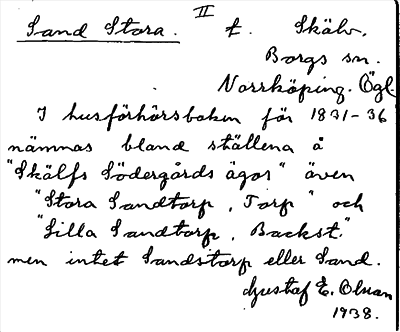 Sand Stora. II t. Skälv.
Borgs sn.
Norrköping. Ögl.
I husförhörsboken för 1831-36
nämnas bland ställena å
"Skälfs Södergårds ägor" även
"Stora Sandtorp, Torp" och
"Lilla Sandtorp, Backst."
men intet Sandstorp eller Sand.
Gustaf E. Olsson
1938.